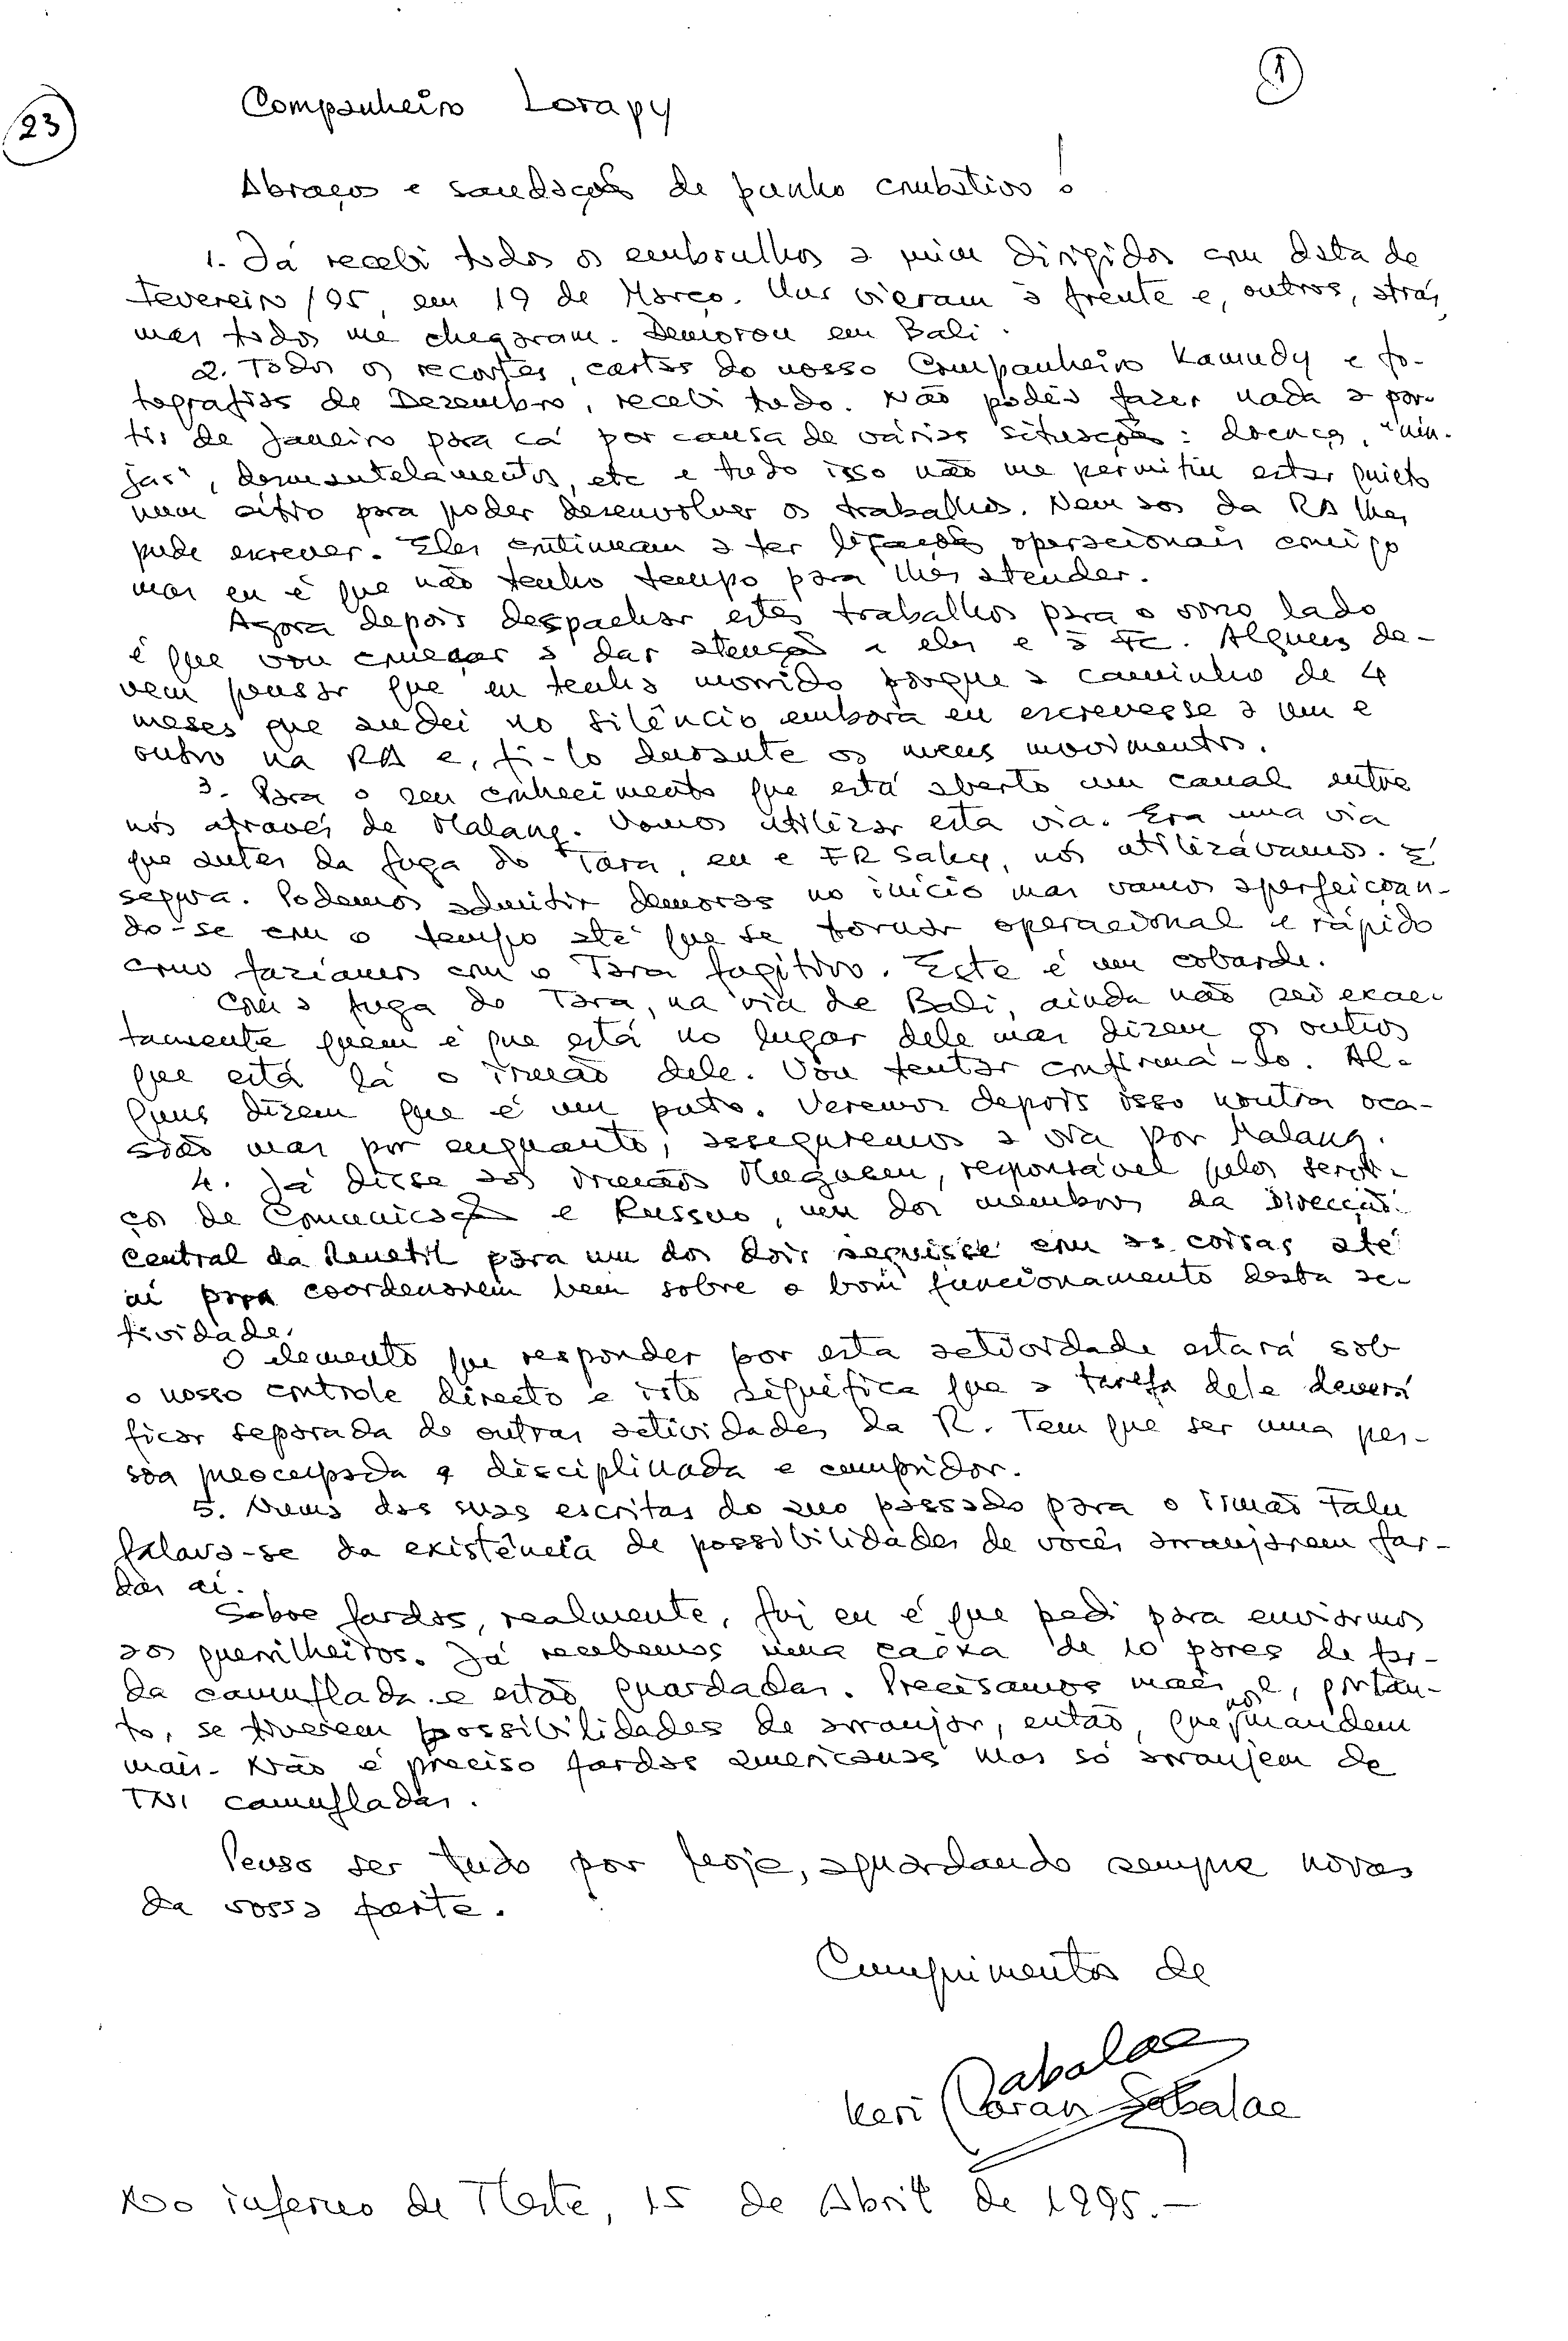 1
23
Companheiro Lorapy
Abraços e saudações de punho combativo!
1. Já recebi todos os embrulhos a mim dirigidos com data de
Fevereiro/95, em 19 de Março. Uns vieram à frente e, outros, atrás,
mas todos me chegaram. Demorou em Bali.
2. Todos os recortes, cartas do nosso Companheiro Kamudy e fo-
tografias de Dezembro, recebi tudo. Não podia fazer nada a par-
tir de Janeiro para cá por causa de várias situações: doença, "nin-
jas", desmantelamentos, etc e tudo isso não me permitiu estar quieto
num sítio para poder desenvolver os trabalhos. Nem aos da RA lhes
pude escrever. Eles continuam a ter ligações operacionais comigo
mas eu é que não tenho tempo para lhes atender.
Agora depois despachar estes trabalhos para o vosso lado
é que vou começar a dar atenção a eles e à FC. Alguns de-
vem pensar que eu tenha morrido porque a caminho de 4
meses que andei no silêncio embora eu escrevesse a um e
outro na RA e, fi-lo durante os meus movimentos.
3. Para o seu conhecimento que está aberto um canal entre
nós através de Malang. Vamos utilizar esta via. Era uma via
que antes da fuga do Tara, eu e FR Saky, nós utilizávamos. É
segura. Podemos admitir demoras no início mas vamos aperfeiçoan-
do-se com o tempo até que se tornar operacional e rápido
como faziamos com o Tara fugitivo. Este é um cobarde.
Com a fuga do Tara, na via de Bali, ainda não sei exac-
tamente quem é que está no lugar dele mas dizem os outros
que está lá o irmão dele. Vou tentar confirmá-lo. Al-
guns dizem que é um puto. Veremos depois isso noutra oca-
sião mas por enquanto, asseguremos a via por Malang.
4. Já disse aos irmãos Muguem, responsável pelos servi-
ços de Comunicação e Russuo, um dos membros da Direcção
Central da Renetil para um dos dois seguisse com as coisas até
aí para coordenarem bem sobre o bom funcionamento desta ac-
tividade.
O elemento que responder por esta actividade estará sob
o nosso controle directo e isto significa que a tarefa dele deverá
ficar separada de outras actividades da R. Tem que ser uma pes-
soa preocupada e disciplinada e cumpridor.
5. Numa das suas escritas do ano passado para o irmão Falu
falava-se da existência de possibilidades de vocês arranjarem far-
das aí.
Sobre fardas, realmente, fui eu é que pedi para enviarmos
aos guerrilheiros. Já recebemos uma caixa de 10 pares de far-
da camuflada e estão guardadas. Precisamos mais e, portan-
to, se tiverem possibilidades de arranjar, então, que nos mandem
mais. Não é preciso fardas americanas mas só arranjem de
TNI camufladas.
Penso ser tudo por hoje, aguardando sempre novas
da vossa parte.
Cumprimentos de
Sabalae
Keri Laran Sabalae
No inferno de T. Leste, 15 de Abril de 1995.—